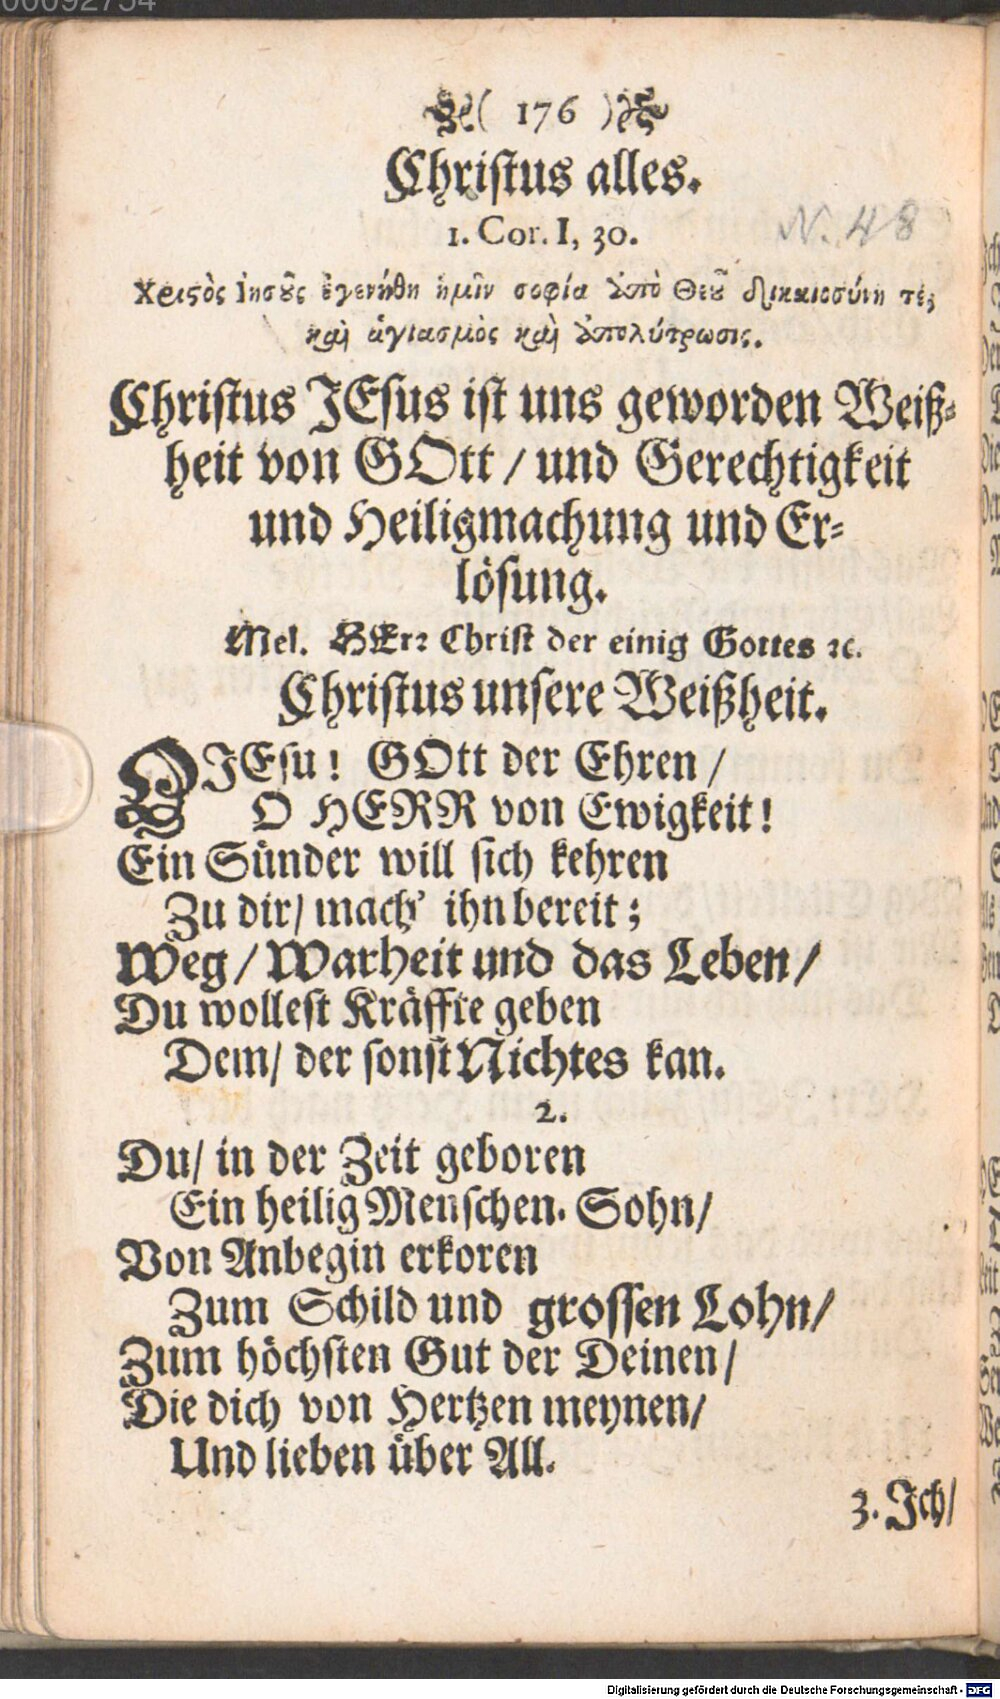 00092754
( 176 )
Christus alles.
1. Cor. I, 30.
N. 48
Χριϛὸς Ἰησοῦς ἐγενήθη ἡμῖν σοφία ἀπὸ Θεοῦ δικαιοσύνη τὲ,
καὶ ἁγιασμὸς καὶ ἀπολύτρωσις.
Christus JEsus ist uns geworden Weiß-
heit von GOtt / und Gerechtigkeit
und Heiligmachung und Er-
lösung.
Mel. HErr Christ der einig Gottes ꝛc.
Christus unsere Weißheit.
O JEsu! GOtt der Ehren /
O HERR von Ewigkeit!
Ein Sünder will sich kehren
Zu dir/ mach' ihn bereit;
Weg / Warheit und das Leben /
Du wollest Kräffte geben
Dem/ der sonst Nichtes kan.
2.
Du/ in der Zeit geboren
Ein heilig Menschen-Sohn/
Von Anbegin erkoren
Zum Schild und grossen Lohn/
Zum höchsten Gut der Deinen/
Die dich von Hertzen meynen/
Und lieben über All.
3. Jch/
Digitalisierung gefördert durch die Deutsche Forschungsgemeinschaft - DFG